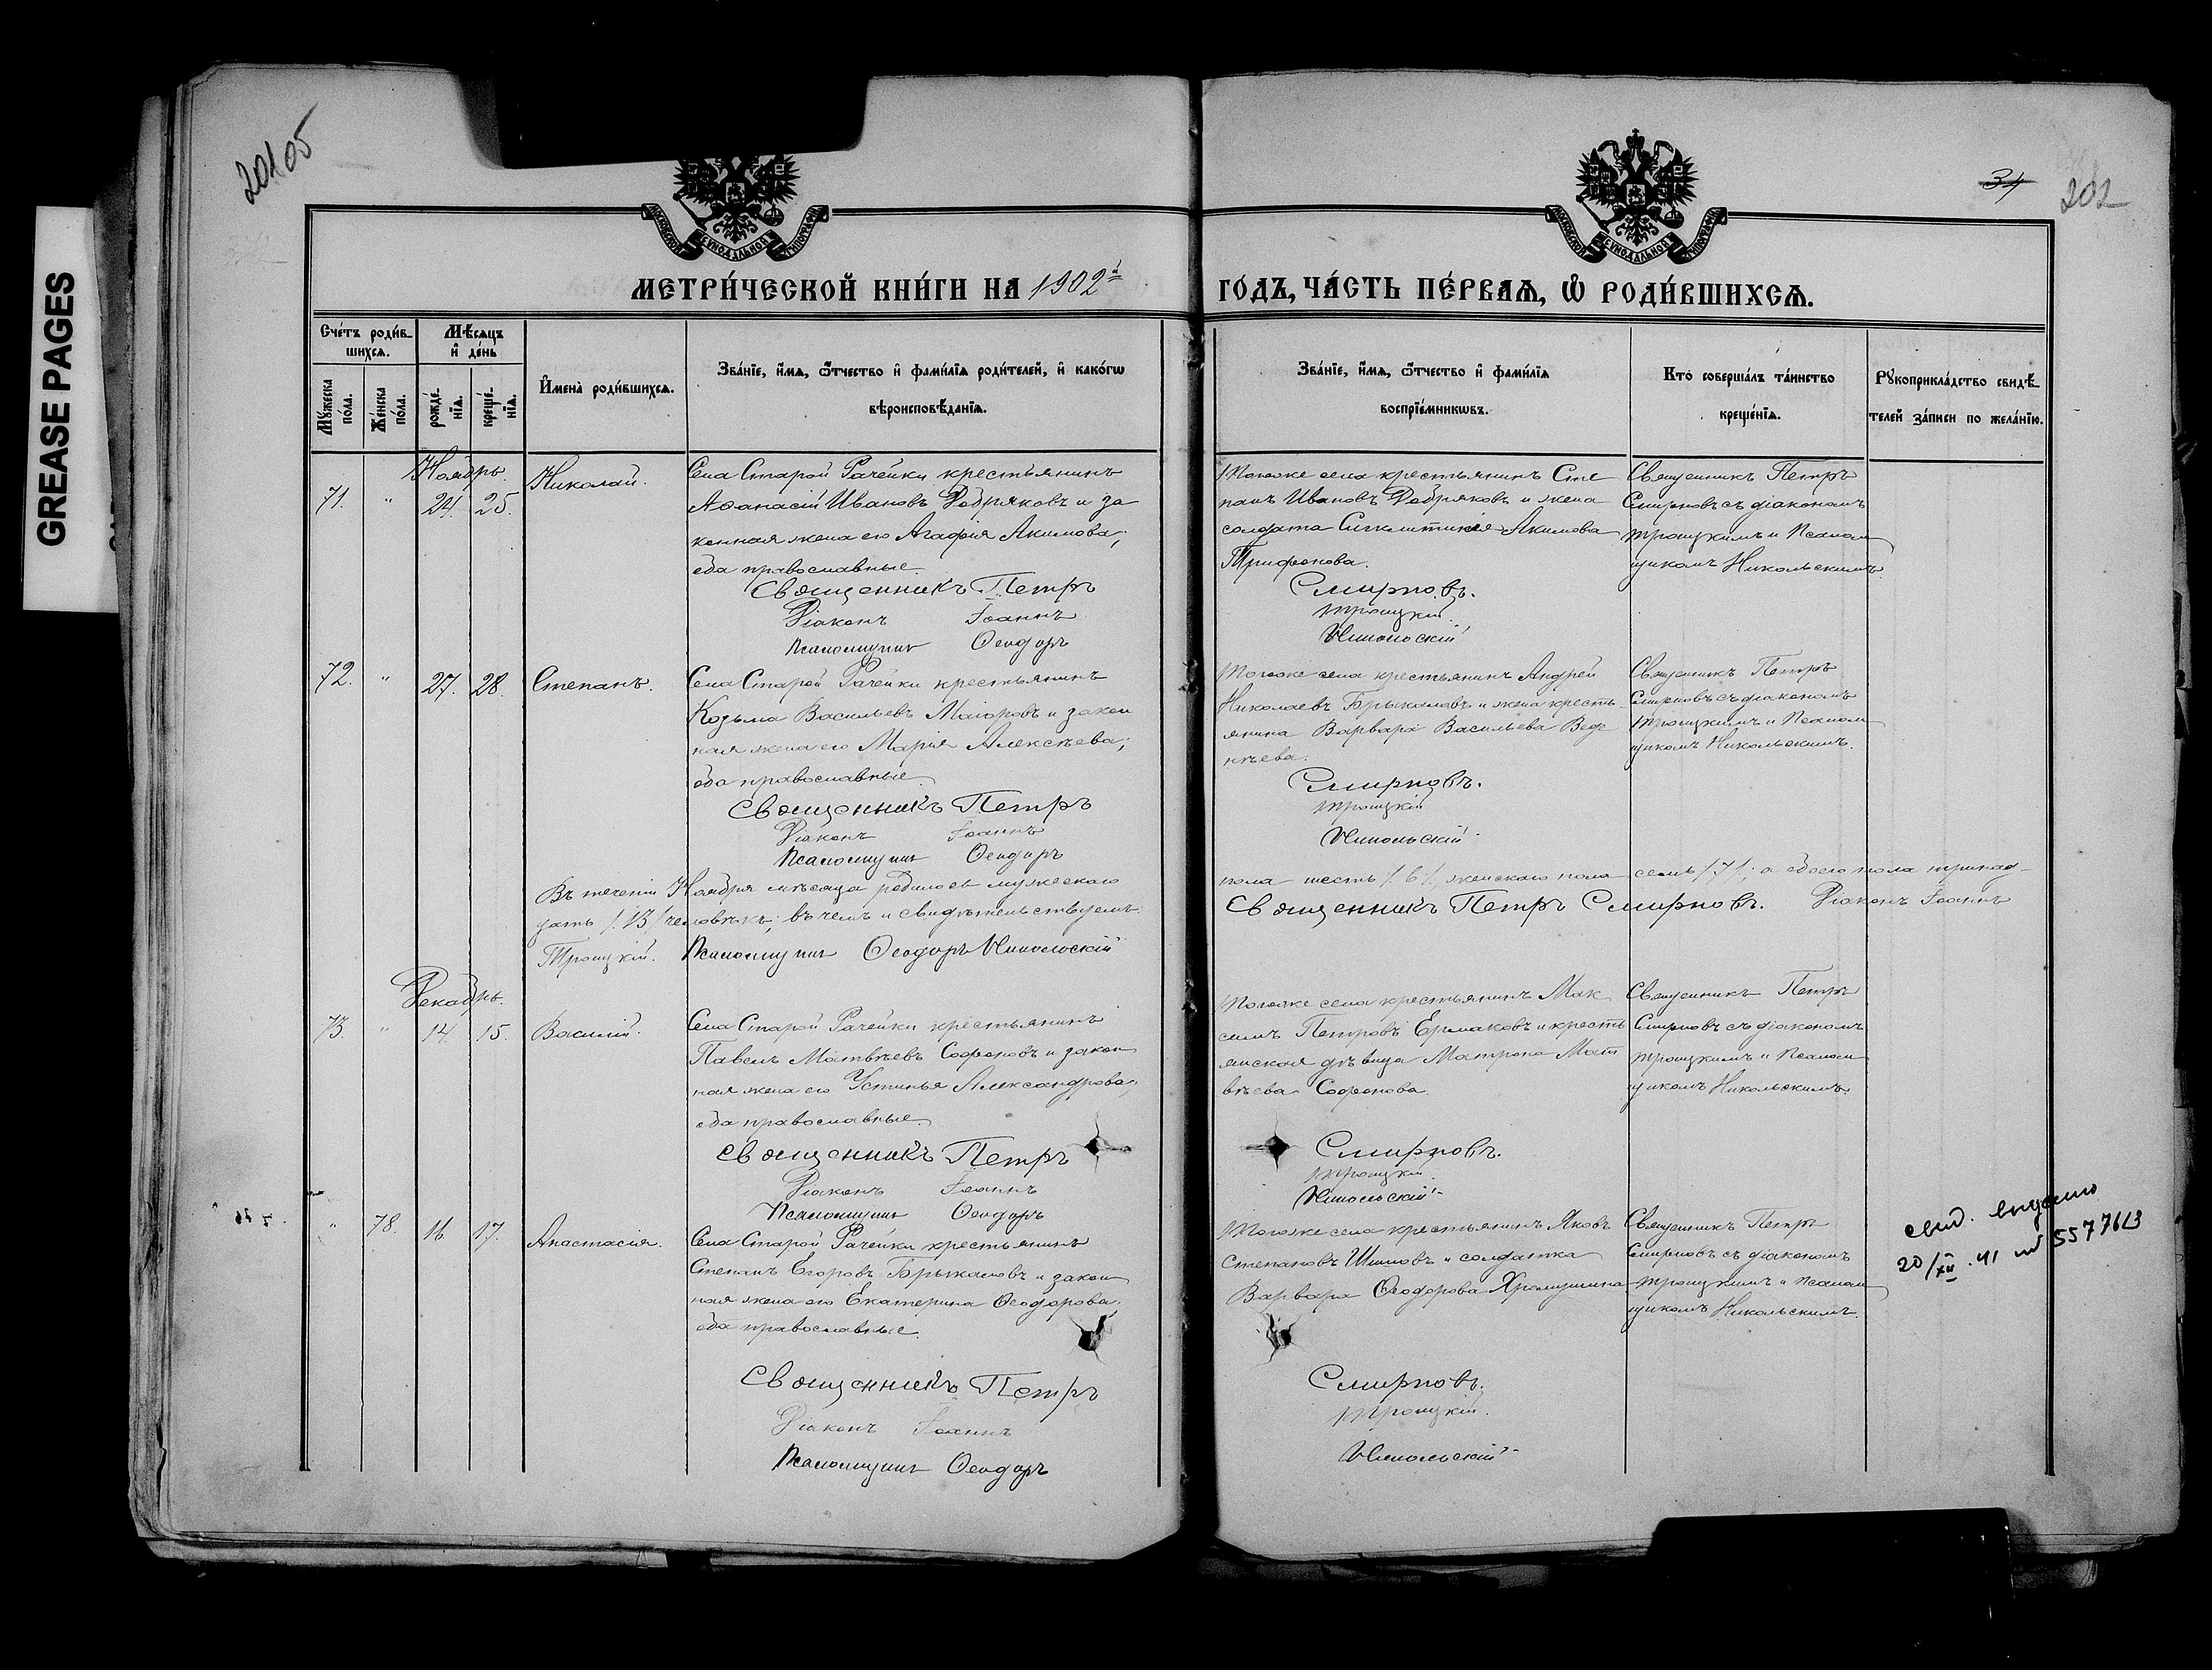 GREASE PAGES
20105
34
202
МОСКОВСКОЙ СѴНОДАЛЬНОЙ ТИПОГРАФІИ
МОСКОВСКОЙ СѴНОДАЛЬНОЙ ТИПОГРАФІИ
МЕТРИ́ЧЕСКОЙ КНИ́ГИ НА 1902й ГО́ДЪ, ЧА́СТЬ ПЕ́РВАѦ, Ѡ҆ РОДИ́ВШИХСѦ.
Сче́тъ роди́в-
шихсѧ.
Мѣ́сѧцъ
и҆ де́нь
Мꙋ́жеска по́ла.
Же́нска по́ла.
рожде́-нїѧ.
креще́-нїѧ.
И҆мена̀ роди́вшихсѧ.
Зва́нїе, и҆́мѧ, ѻ҆́тчество и҆ фами́лїѧ роди́телей, и҆ како́гѡ
вѣроисповѣ́данїѧ.
Зва́нїе, и҆́мѧ, ѻ҆́тчество и҆ фами́лїѧ
воспрїе́мникѡвъ.
Кто̀ соверша́лъ та́инство
креще́нїѧ.
Рꙋкоприкла́дство свидѣ́-
телей за́писи по жела́нїю.
Ноябрь.
71. " 24. 25. Николай.
Села Старой Рачейки крестьянинъ
Аѳанасій Ивановъ Добряковъ и за
конная жена его Агафія Акимова;
оба православные.
Священникъ Петръ
Діаконъ Іоаннъ
Псаломщикъ Ѳеодоръ
Тогоже села крестьянинъ Сте
панъ Ивановъ Добряковъ и жена
солдата Синклитикія Акимова
Трифонова.
Смирновъ.
Троицкій.
Никольскій
Священникъ Петръ
Смирновъ съ діакономъ
Троицкимъ и Псалом
щикомъ Никольскимъ.
72. " 27. 28. Степанъ.
Села Старой Рачейки крестьянинъ
Козьма Васильевъ Маіоровъ и закон
ная жена его Марія Алексѣева;
оба православные
Священникъ Петръ
Діаконъ Іоаннъ
Псаломщикъ Ѳеодоръ
Тогоже села крестьянинъ Андрей
Николаевъ Брыкаловъ и жена кресть
янина Варвара Васильева Веде
нѣева.
Смирновъ.
Троицкій
Никольскій
Священникъ Петръ
Смирновъ съ діакономъ
Троицкимъ и Псалом
щикомъ Никольскимъ.
Въ теченіи Ноября мѣсяца родилось мужескаго пола шесть /6/, женскаго пола семь /7/; а обоего пола тринад-
цать /13/ человѣкъ; въ чемъ и свидѣтельствуемъ: Священникъ Петръ Смирновъ. Діаконъ Іоаннъ
Троицкій. Псаломщикъ Ѳеодоръ Никольскій
Декабрь.
73. " 14. 15. Василій.
Села Старой Рачейки крестьянинъ
Павелъ Матвѣевъ Софоновъ и закон
ная жена его Устинья Александрова;
оба православные.
Священникъ Петръ
Діаконъ Іоаннъ
Псаломщикъ Ѳеодоръ
Тогоже села крестьянинъ Мак
симъ Петровъ Ермаковъ и кресть
янская дѣвица Матрона Мат
вѣева Софонова.
Смирновъ.
Троицкій
Никольскій
Священникъ Петръ
Смирновъ съ діакономъ
Троицкимъ и Псалом
щикомъ Никольскимъ.
" 78. 16. 17. Анастасія.
Села Старой Рачейки крестьянинъ
Степанъ Егоровъ Брыкаловъ и закон
ная жена его Екатерина Ѳеодорова;
оба православные.
Священникъ Петръ
Діаконъ Іоаннъ
Псаломщикъ Ѳеодоръ
Тогоже села крестьянинъ Яковъ
Степановъ Шиповъ и солдатка
Варвара Ѳеодорова Хромушина
Смирновъ.
Троицкій.
Никольскій
Священникъ Петръ
Смирновъ съ діакономъ
Троицкимъ и псалом
щикомъ Никольскимъ.
свид. выдано
20/XII. 41 № 557761/3